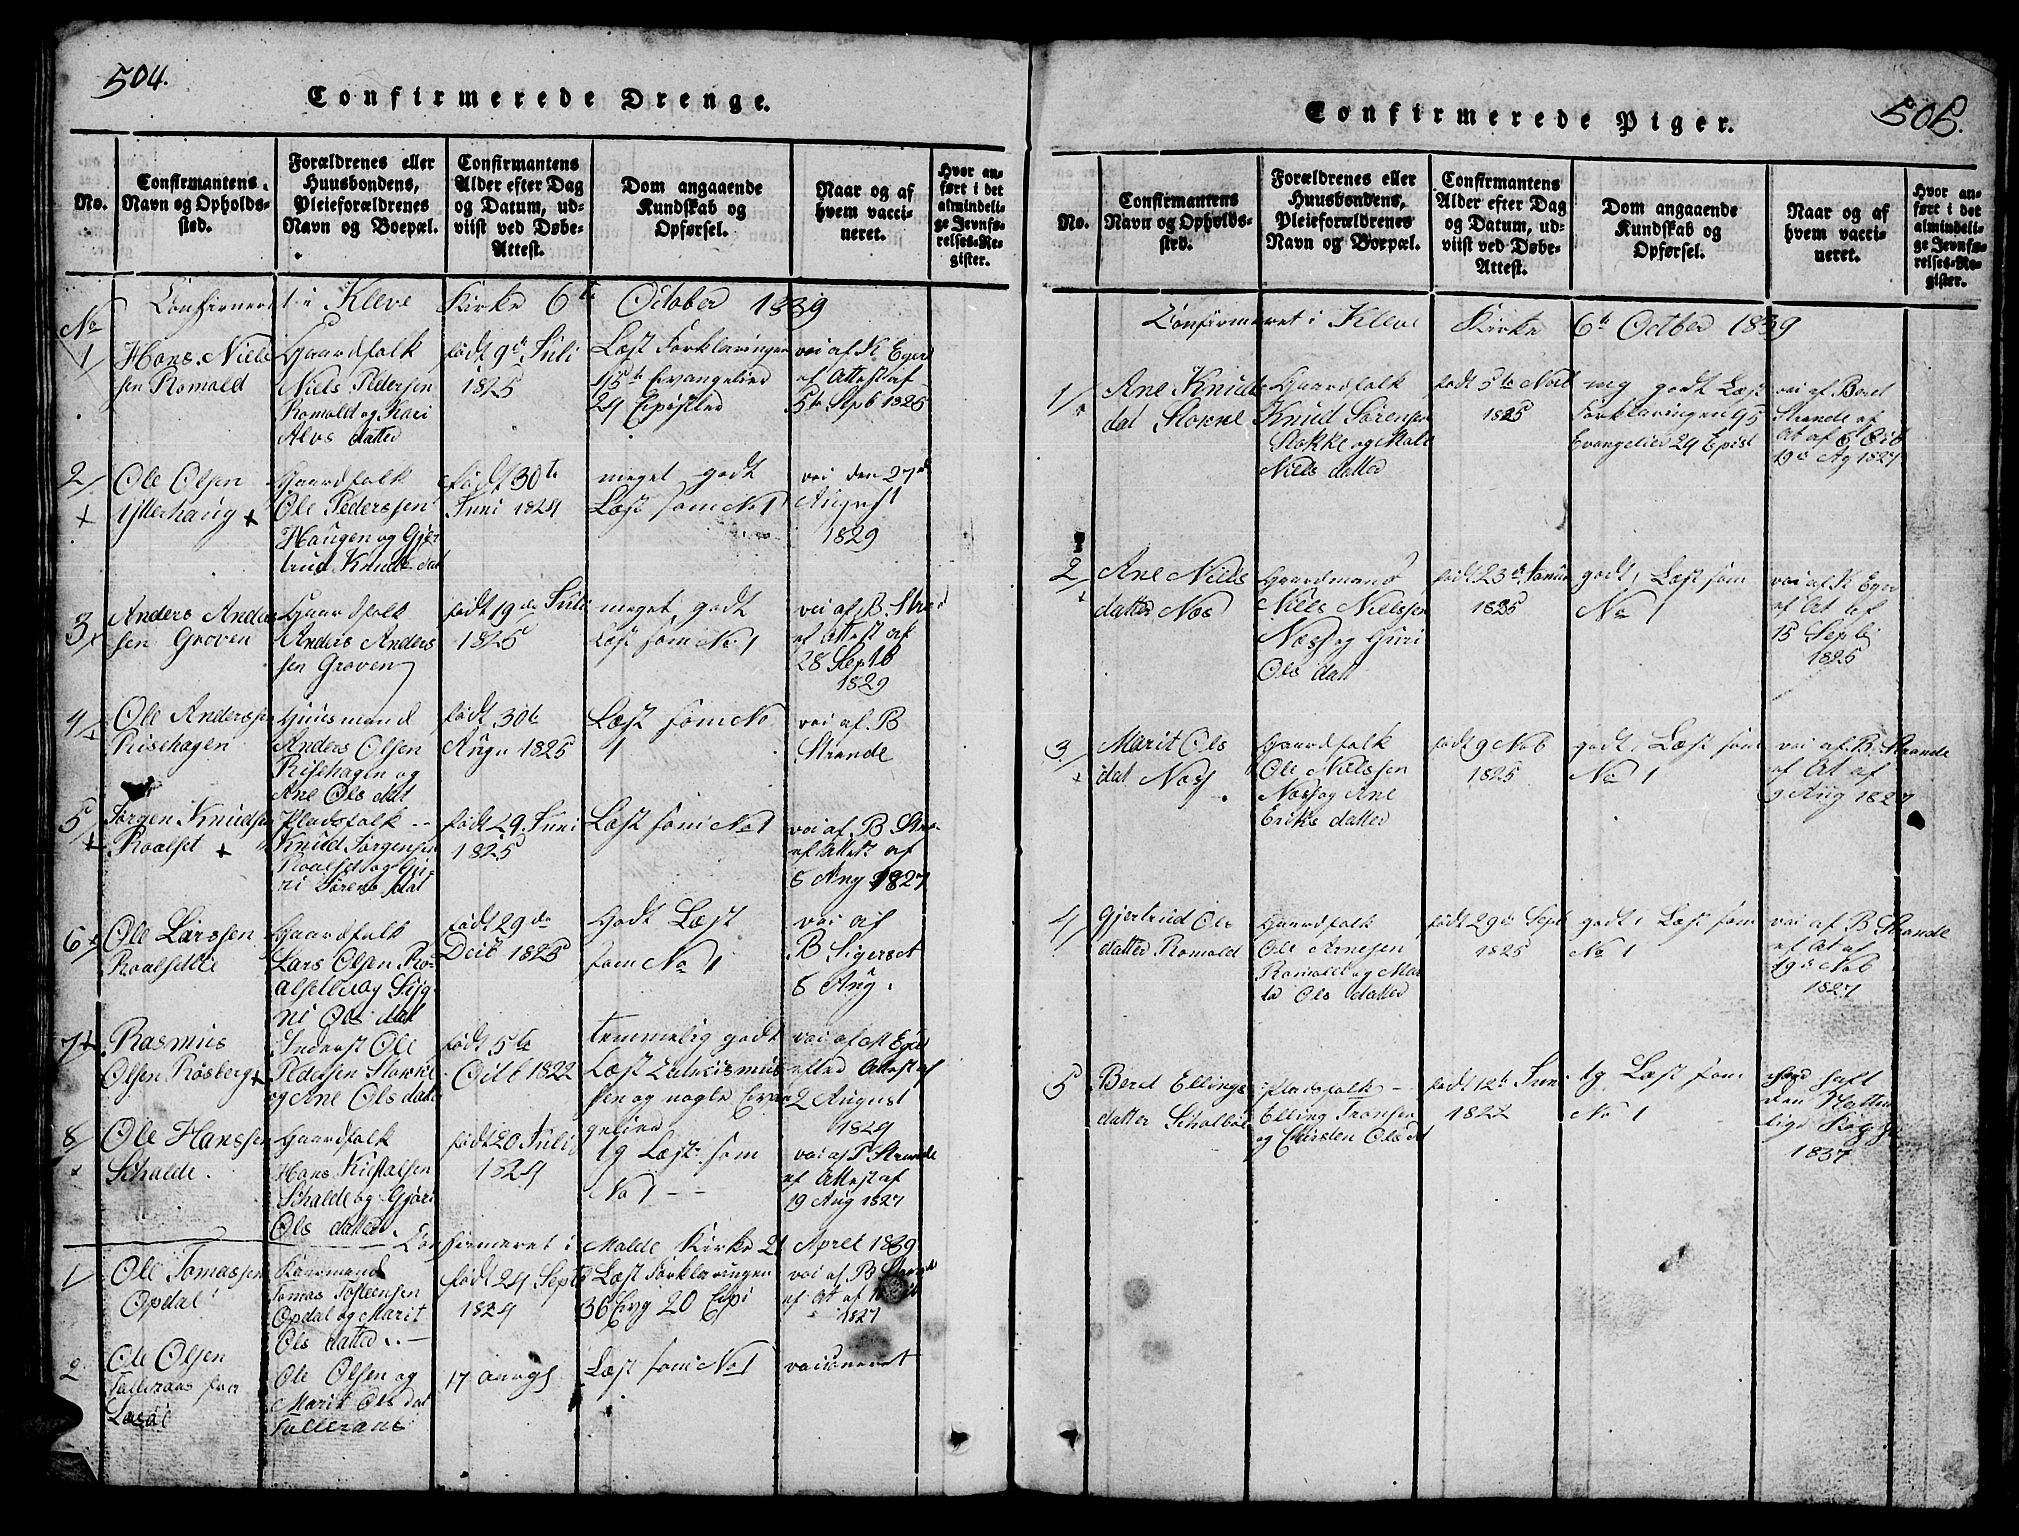 504.
Confirmerede Drenge.
No.
Confirmantens
Navn og Opholds-
sted.
Forældrenes eller
Huusbondens,
Pleieforældrenes
Navn og Boepæl.
Confirmantens
Alder efter Dag
og Datum, ud-
viist ved Døbe-
Attest.
Dom angaaende
Kundskab og
Opførsel.
Naar og af
hvem vacci-
neret.
Hvor an-
ført i det
almindeli-
ge Jevnfø-
relses-Re-
gister.
Confirmeret i Kleve Kirke 6te October 1839
No
1
Hans Niels
sen Romald
Gaardfolk
Niels Pedersen
Romald og Kari
Alvs datter
født 9de Juli
1825
Læst Forklaringen
95de Evangelier
24 Epistler
vai af K. Eger
af Attest af
5te Sepb 1825
2
Ole Olsen
Ytterhaug +
Gaardfolk
Ole Pederssen
Haugen og Gjer
trud Knuds dat
født 30te
Juni 1824
meget godt
Læst som No 1
vai den 27de
August
1829
3
Anders Anders
sen Groven
Gaardfolk
Anders Anders
sen Groven
født 19de Juli
1825
meget godt
Læst som No 1
vai af B. Strand
af Attest af
28 Septb
1829
4
Ole Anderssen
Risehagen
Huusmand
Anders Olsen
Risehagen og
Ane Ols dat
født 30te
Augu 1825
Læst som No
1
vai af B
Strande
5
Jørgen Knudsen
Roalset +
Pladsfolk
Knud Jørgensen
Roalset og Gju-
ri Sørens dat
født 29 Juni
1825
Læst som No 1
vai af B Stra-
af Attest af
8 Aug 1827
6
Ole Larssen
Roalsetlie
Gaardfolk
Lars Olsen Ro-
alsetlie og Sig-
ni Ols dat
født 29de
Deib 1825
Godt Læst
som No 1
vai af
B Sigerset
8 Aug.
7
Rasmus
Olsen Røsberg +
Inderst Ole
Pedersen Stokke
og Ane Ols datte
født 5te
Octb 1822
temmelig godt
Læst Catecismus
sen og nogle Evan
gelier
vai af K Eger
efter Attest af
2 August
1829
8
Ole Hanssen
Schalde.
Gaardfolk
Hans Kristafsen
Schalde og Gjøri
Ols datter.
født 20 Juli
1824
tg Læst som
No 1 - -
vai af P Strande
af Attest af
19 Aug 1827
Confirmeret i Molde Kirke 21 Apret 1839
1
Ole Tomassen
Opdal
Kaarmand
Tomas Tosteensen
Opdal og Marit
Ols datter. -
født 24 Septb
1824
Læst Forklaringen
36 Evg 20 Epi
vai af B Strande
af At af
1827
2
Ole Olsen
Talleraas
Ole Olsen og
Marit Ols dat
Talleraas
17 aargl
Læst som No 1
vaicineret
505.
Confirmerede Piger.
No.
Confirmantens
Navn og Opholds-
sted.
Forældrenes eller
Huusbondens,
Pleieforældrenes
Navn og Boepæl.
Confirmantens
Alder efter Dag
og Datum, ud-
viist ved Døbe-
Attest.
Dom angaaende
Kundskab og
Opførsel.
Naar og af
hvem vacci-
neret.
Hvor an-
ført i det
almindeli-
ge Jevnfø-
relses-Re-
gister.
Confirmeret i Kleve Kirke 6te Octber 1839
1
Ane Knuds
dat Stokke
Gaardfolk
Knud Sørensen
Stokke og Male
Niels datter
født 5te Novb
1825
mg godt Læst
Forklaringen 95
Evangelier 29 Epist
vai af Beret
Strande af
At af
19de Ag 1827
2
Ane Niels
datter Nos
Gaardmand
Niels Nielssen
Næss og Guri
Ols dat
født 23de Janua
1825
godt, Læst som
No 1
vai af K Eger
af At af
15 Septb
1825
3
Marit Ols
dat Næss
Gaardfolk
Ole Nielssen
Næss og Ane
Eriks datter
født 9 Novb
1825
godt, Læst som
No 1
vai af B. Strande
af At af
9 Aug 1827
4
Gjertrud Ols
datter Romald
Gaardfolk
Ole Arnesen
Romald og Mar
ta Ols datter
født 29de Sept
1825
godt, Læst som
No 1
vai af B Strande
af At af
19de Novb
1827
5
Beret Ellings
datter Schalbøl
Pladsfolk -
Elling Transen
og Chirsten Ols dt
født 12te Juni
1822
tg Læst som
No 1
haft
1837